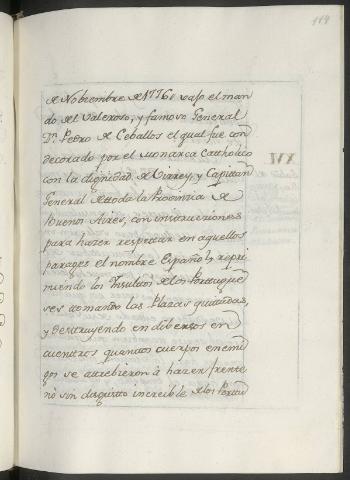 114
de Nobiembre de 1776 vajo el man
do del Valeroso, y famoso General
Dn. Pedro de Ceballos el qual fue con
decorado por el Monarca Catholico
con la dignidad de Virrey, y Capitan
General de toda la Provincia de
Buenos Aires, con instrucciones
para hazer respetar en aquellos
parages el nombre Español, y repri
miendo los Insultos de los Portugue
ses tomando las Plazas quitadas,
y destruyendo en dibersos en
cuentros quantos cuerpos enemi
gos se atrebieron à hazer frente
nò sin disgusto increible de los Portu